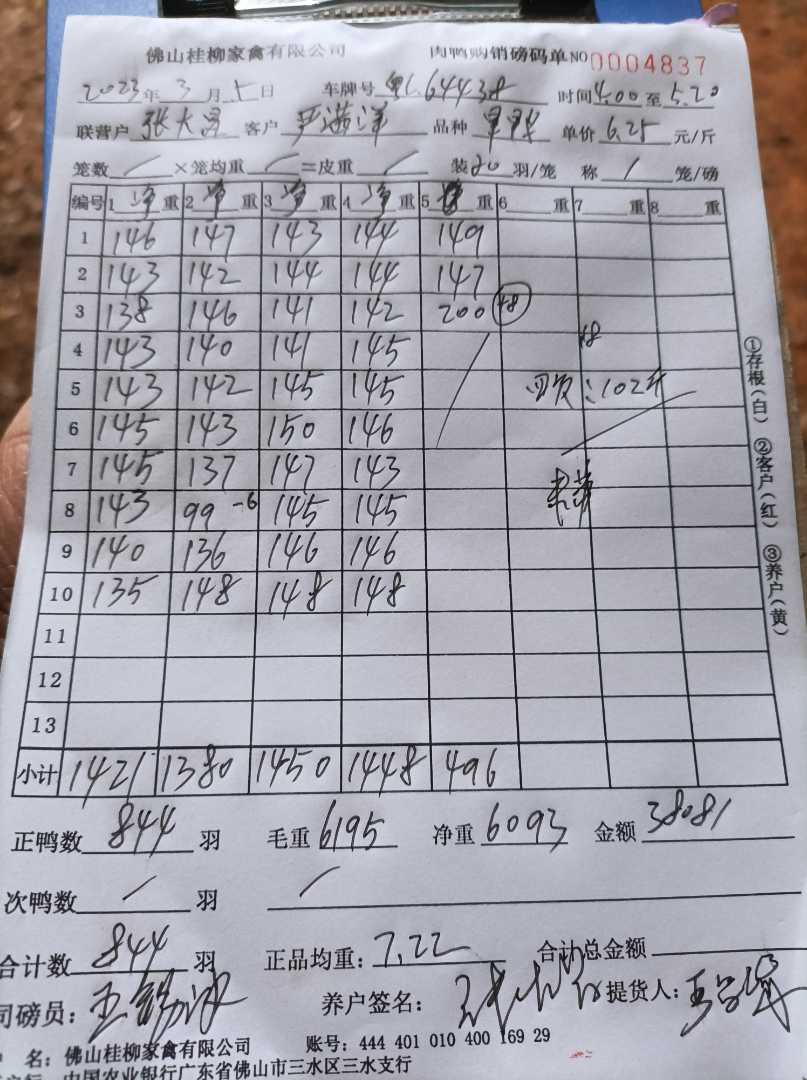 佛山桂柳家禽有限公司 肉鸭购销磅码单 NO 0004837
2023年 3 月 5 日 车牌号 64438 时间 4.00 至 5.20
联营户 张大 客户 严满洋 品种 单价 6.25 元/斤
笼数 / ×笼均重 / =皮重 / 装 20 羽/笼 称 1 笼/磅
编号 1 净 重 2 净 重 3 净 重 4 净 重 5 重 6 重 7 重 8 重
1 146 147 143 144 149
2 143 142 144 144 147
3 138 146 141 142 200 48
4 143 140 141 145 48
5 143 142 145 145 :102斤
6 145 143 150 146
7 145 137 147 143
8 143 99 -6 145 145
9 140 136 146 146
10 135 148 148 148
11
12
13
小计 1421 1380 1450 1448 496
①存根(白) ②客户(红) ③养户(黄)
正鸭数 844 羽 毛重 6195 净重 6093 金额 38081
次鸭数 / 羽 /
合计数 844 羽 正品均重: 7.22 合计总金额
司磅员: 养户签名: 提货人:
名: 佛山桂柳家禽有限公司 账号: 444 401 010 400 169 29
中国农业银行广东省佛山市三水区三水支行